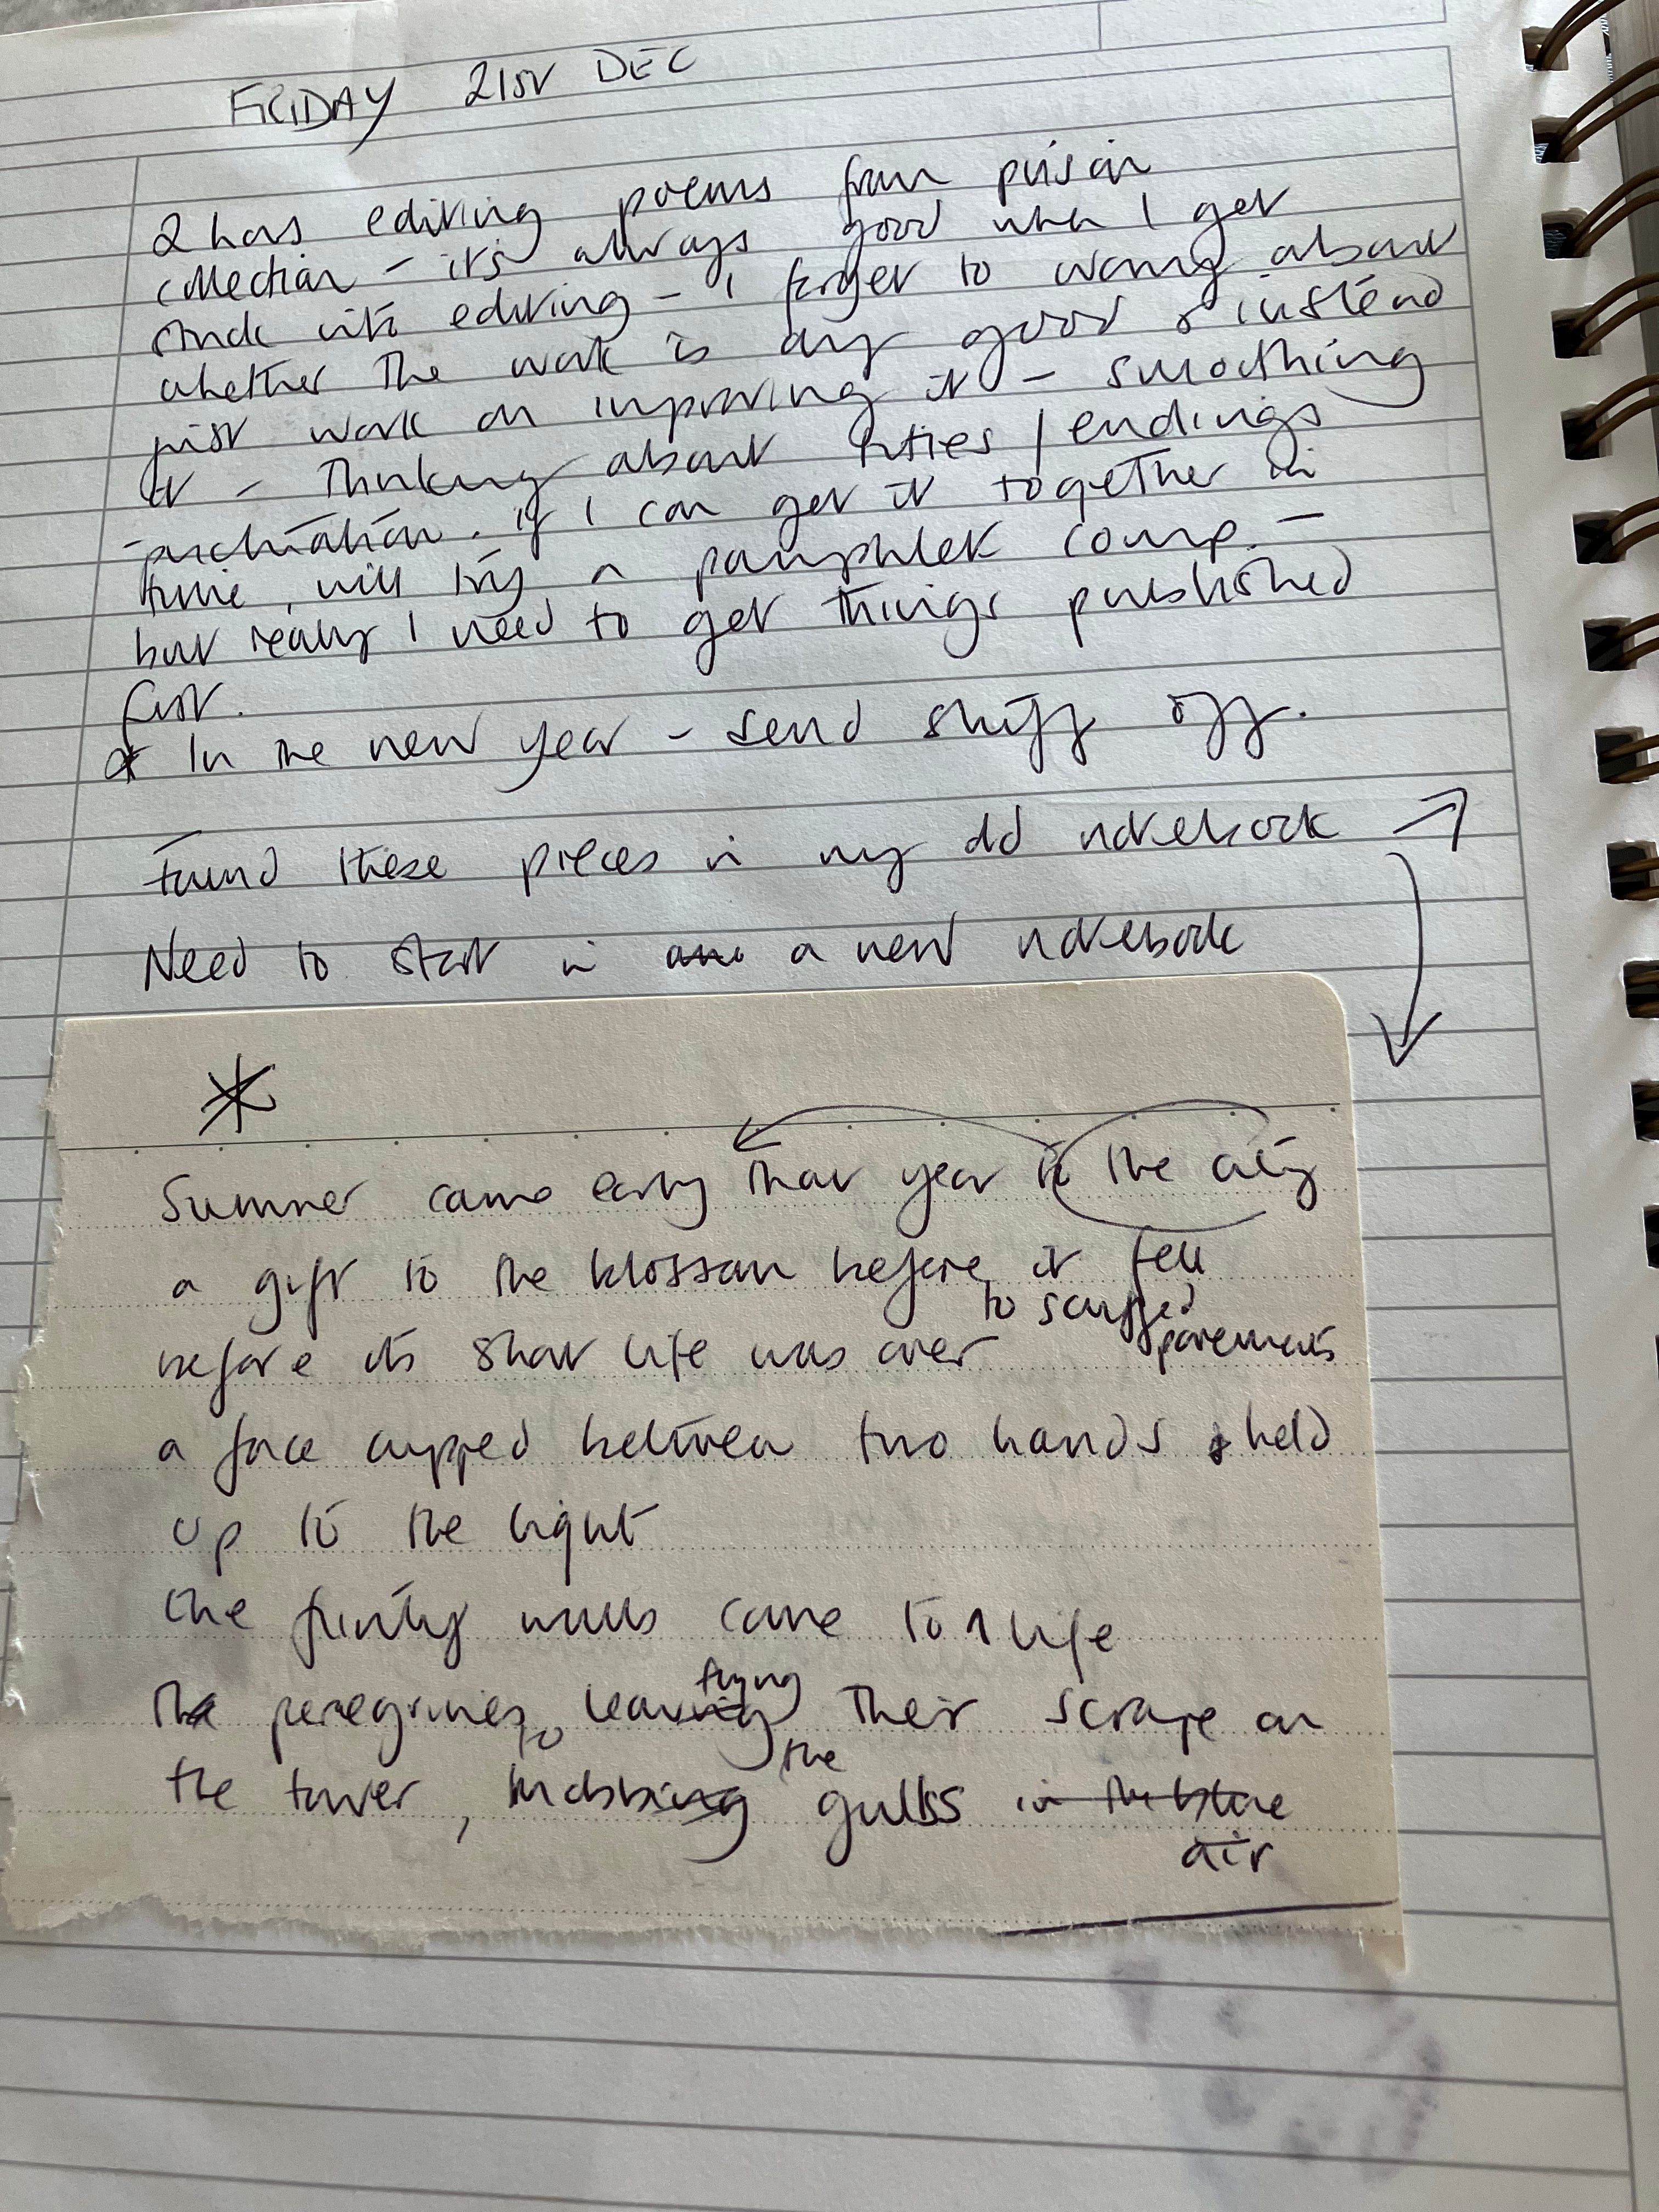 FRIDAY 21ST DEC
2 hrs editing poems from prison
collection - it's always good when I get
stuck into editing - I forget to worry about
whether the work is any good & instead
just work on improving it - smoothing
it - thinking about titles / endings
punctuation. If I can get it together in
time, will try a pamphlet comp. -
but really I need to get things published
first.
* In the new year - send stuff off.
Found these pieces in my old notebook →
Need to start in a new notebook
*
Summer came early that year to the city
a gift to the blossom before it fell
to scuffed
before its short life was over pavements
a face cupped between two hands & held
up to the light
the flinty walls came to life
flying
the peregrines leaving their scrape on
to the
the tower, mobbing gulls in the blue
air